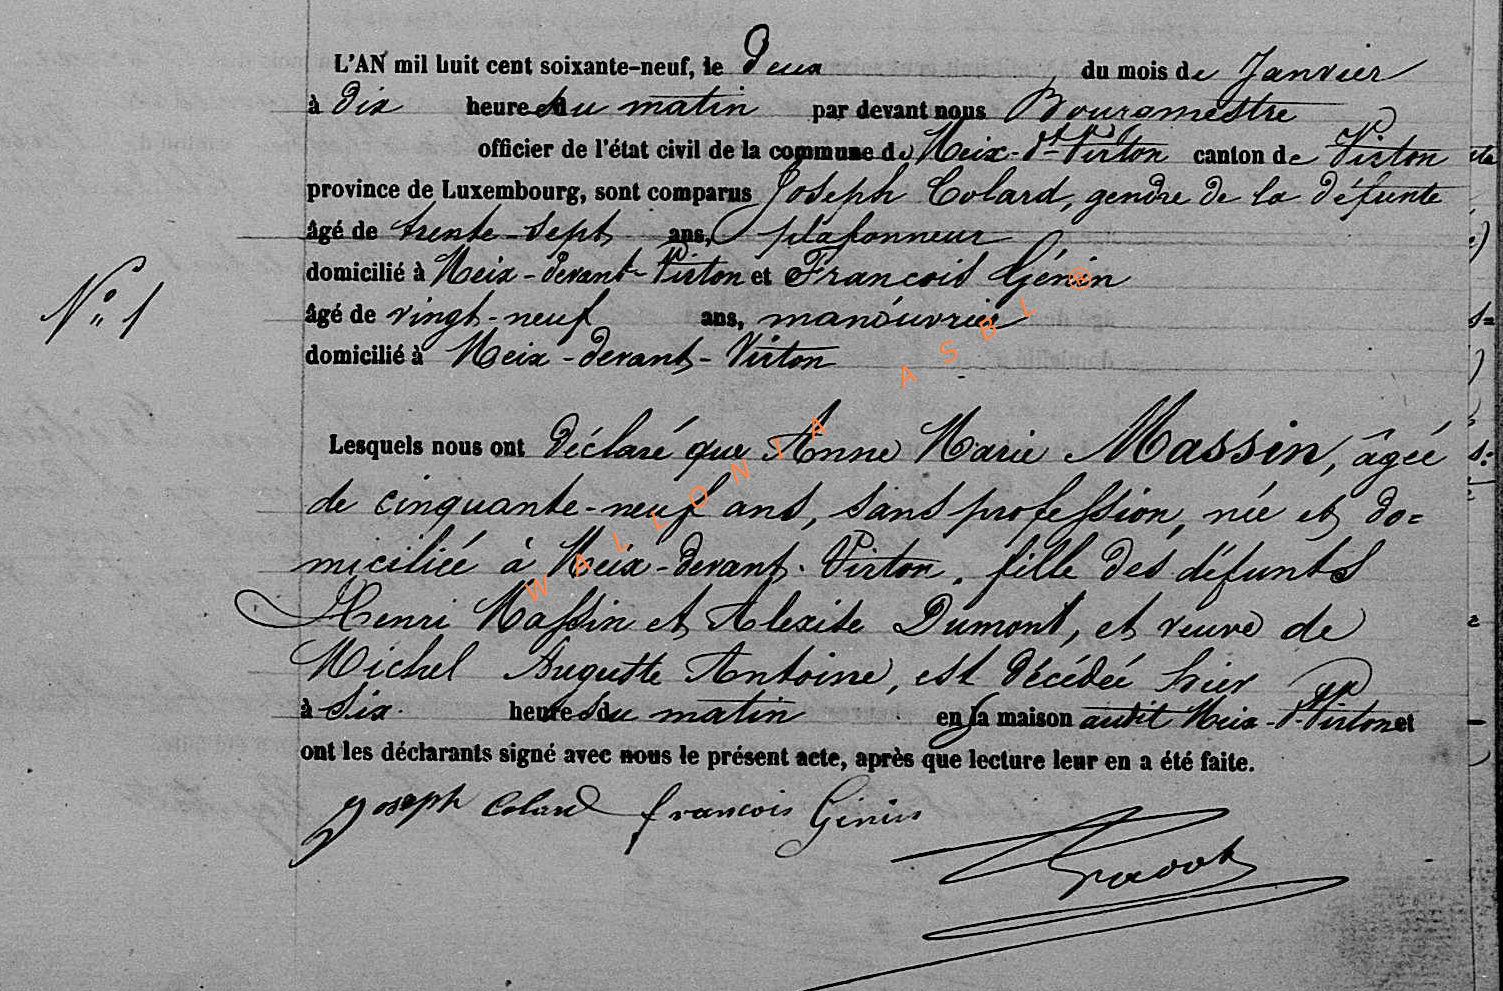 L'AN mil huit cent soixante-neuf, le Deux du mois de Janvier
à dix heures du matin par devant nous Bourgmestre
officier de l'état civil de la commune de Meix-dt-Virton canton de Virton
province de Luxembourg, sont comparus Joseph Colard, gendre de la défunte
âgé de trente-sept ans, plafonneur
domicilié à Meix-devant-Virton et Francois Génin
N° 1
âgé de vingt-neuf ans, manouvrier
domicilié à Meix-devant-Virton
Lesquels nous ont déclaré que Anne Marie Massin, âgée
de cinquante-neuf ans, sans profession, née et do=
miciliée à Meix-devant-Virton, fille des défunts
Henri Massin et Alexise Dumont, et veuve de
Michel Auguste Antoine, est décédée hier
à six heures du matin en sa maison audit Meix-dt-Virton et
ont les déclarants signé avec nous le présent acte, après que lecture leur en a été faite.
Joseph Colard francois Génin
WALLONIA ASBL ©